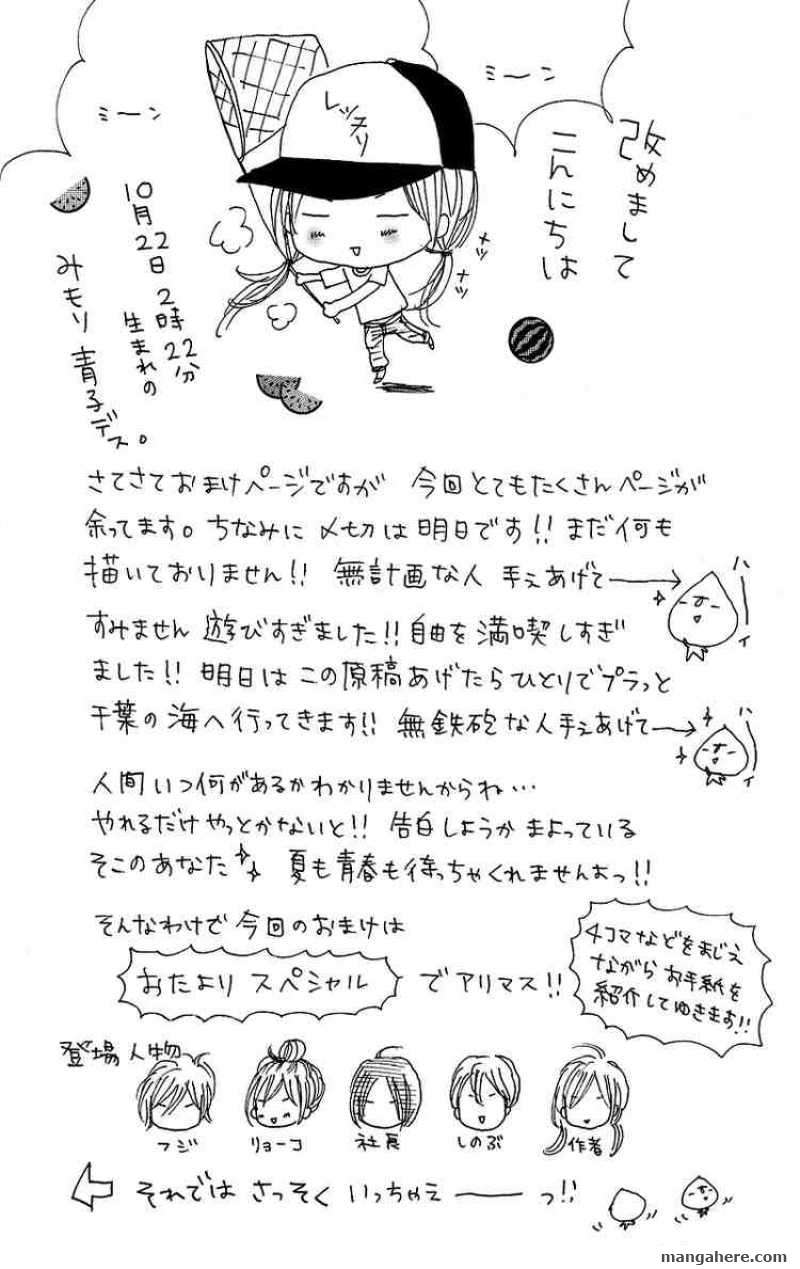 改めまして
こんにちは
ミーン
ミーン
レッスリ
ナッ
ナッ
10月22日 2時22分
生まれの
みもり青子デス。
さてさておまけページですが 今回とてもたくさんページが
余ってます。ちなみに〆切は明日です!! まだ何も
描いておりません!! 無計画な人 手ぇあげて→
ハーイ
すみません 遊びすぎました!! 自由を満喫しすぎ
ました!! 明日はこの原稿あげたらひとりでプラっと
千葉の海へ行ってきます!! 無鉄砲な人手ぇあげて→
ハーイ
人間いつ何があるかわかりませんからね…
やれるだけやっとかないと!! 告白しようかまよっている
そこのあなた 夏も青春も待っちゃくれませんよっ!!
そんなわけで今回のおまけは
おたより スペシャル でアリマス!!
4コマなどをまじえ
ながら お手紙を
紹介してゆきます!!
登場人物
フジ
リョーコ
社長
しのぶ
作者
それでは さっそく いっちゃえ――っ!!
mangahere.com